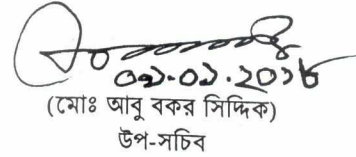 ০৯-০১.২০১৮
(মোঃ আবু বকর সিদ্দিক)
উপ-সচিব